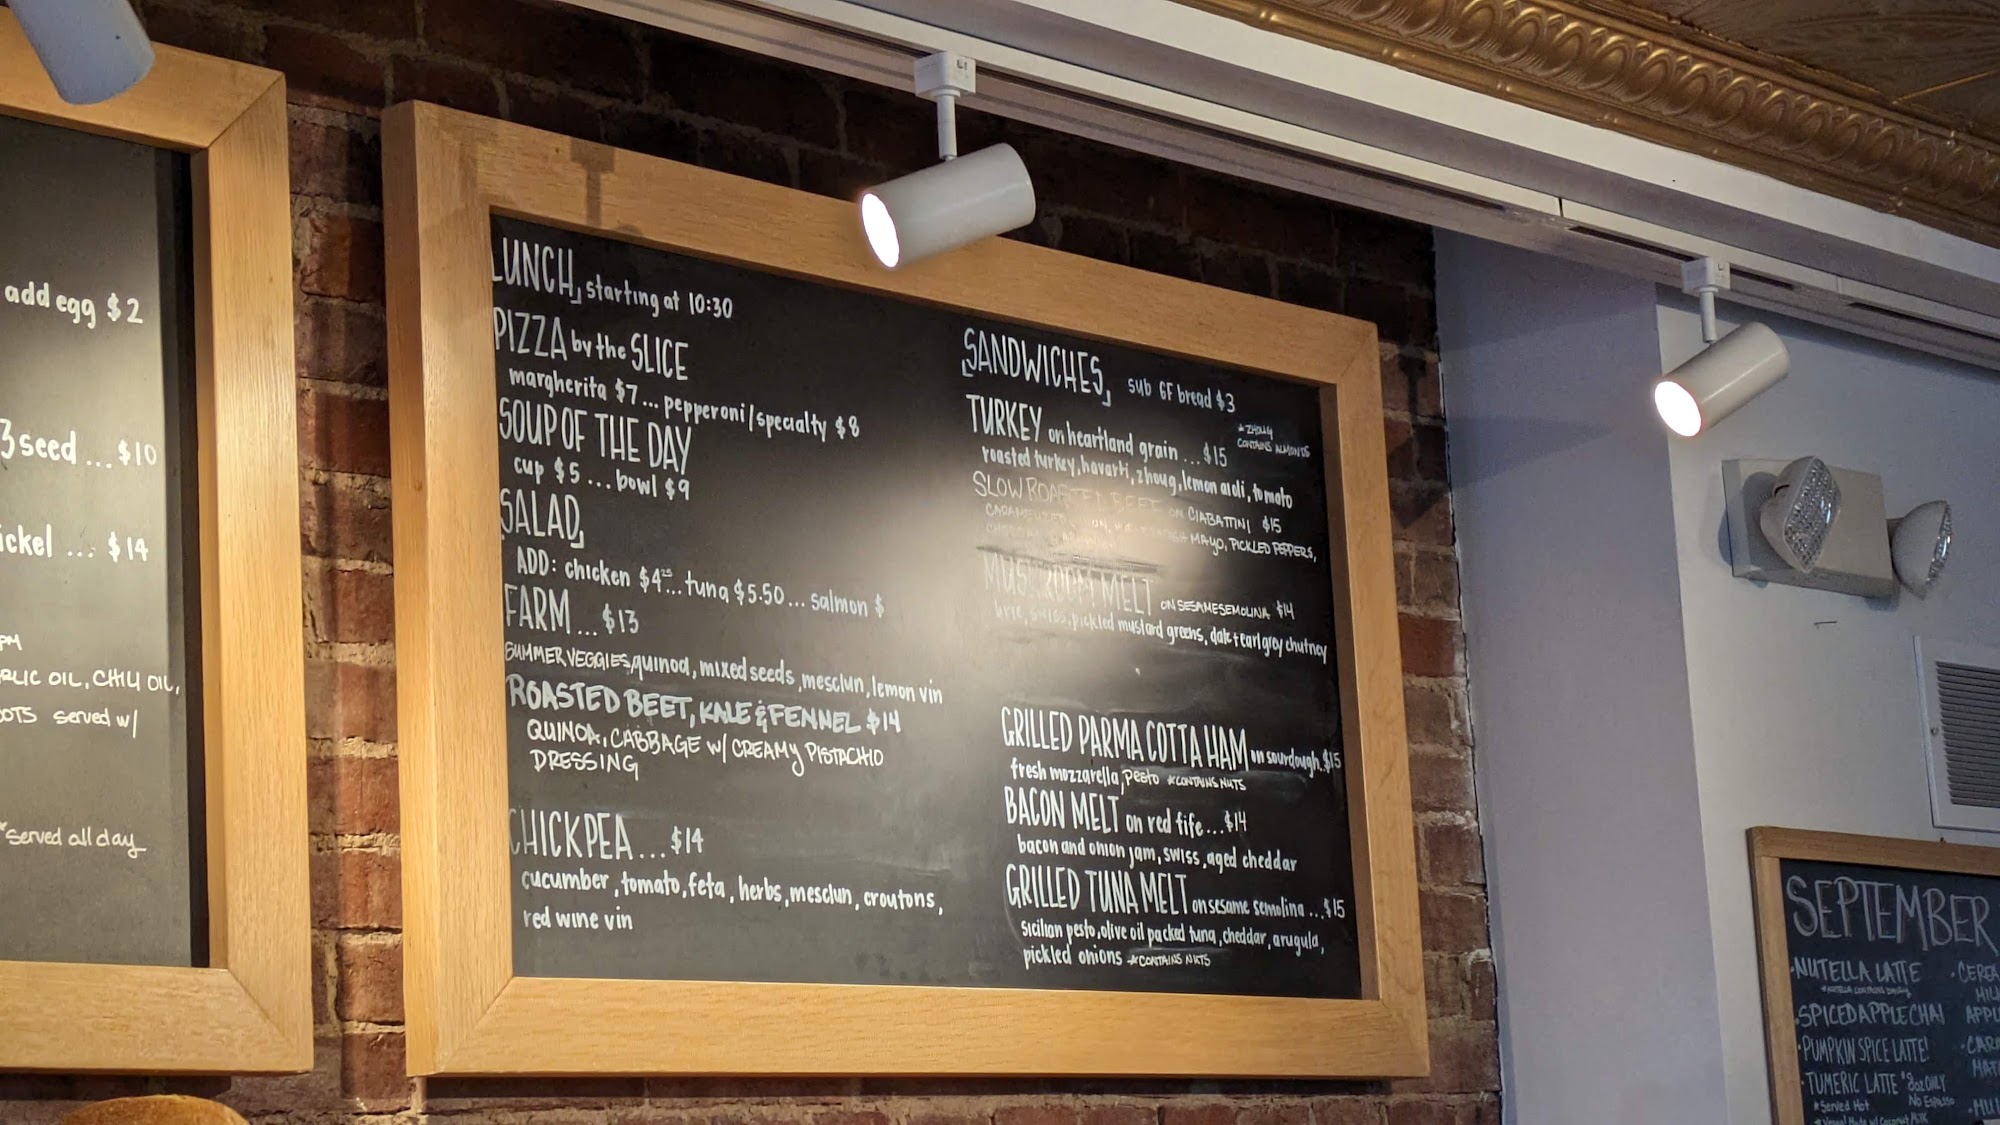 add egg $2
3 seed ... $10
ickel ... $14
PM
RLIC OIL, CHILI OIL,
OTS served w/
*Served all day
LUNCH, starting at 10:30
PIZZA by the SLICE
margherita $7 ... pepperoni/specialty $8
SOUP OF THE DAY
cup $5 ... bowl $9
SALAD
ADD: chicken $4.25 ... tuna $5.50 ... salmon $
FARM ... $13
SUMMER VEGGIES, quinoa, mixed seeds, mesclun, lemon vin
ROASTED BEET, KALE & FENNEL $14
QUINOA, CABBAGE W/ CREAMY PISTACHIO
DRESSING
CHICKPEA ... $14
cucumber, tomato, feta, herbs, mesclun, croutons,
red wine vin
SANDWICHES sub GF bread $3
TURKEY on heartland grain ... $15
*ZHOUG
CONTAINS ALMONDS
roasted turkey, havarti, zhoug, lemon aioli, tomato
SLOW ROASTED BEEF ON CIABATTINI $15
MAYO, PICKLED PEPPERS,
MUSHROOM MELT ON SESAME SEMOLINA $14
brie, swiss, pickled mustard greens, date + earl grey chutney
GRILLED PARMA COTTA HAM on sourdough. $15
fresh mozzarella, PESTO *CONTAINS NUTS
BACON MELT on red fife ... $14
bacon and onion jam, swiss, aged cheddar
GRILLED TUNA MELT on sesame semolina ... $15
sicilian pesto, olive oil packed tuna, cheddar, arugula,
pickled onions *CONTAINS NUTS
SEPTEMBER
• NUTELLA LATTE
*NUTELLA CONTAINS DAIRY
• SPICED APPLE CHAI
• PUMPKIN SPICE LATTE!
• TUMERIC LATTE *8oz ONLY
*Served Hot No Espresso
• CEREA
MIL
APPL
• CAR
MA
• MU